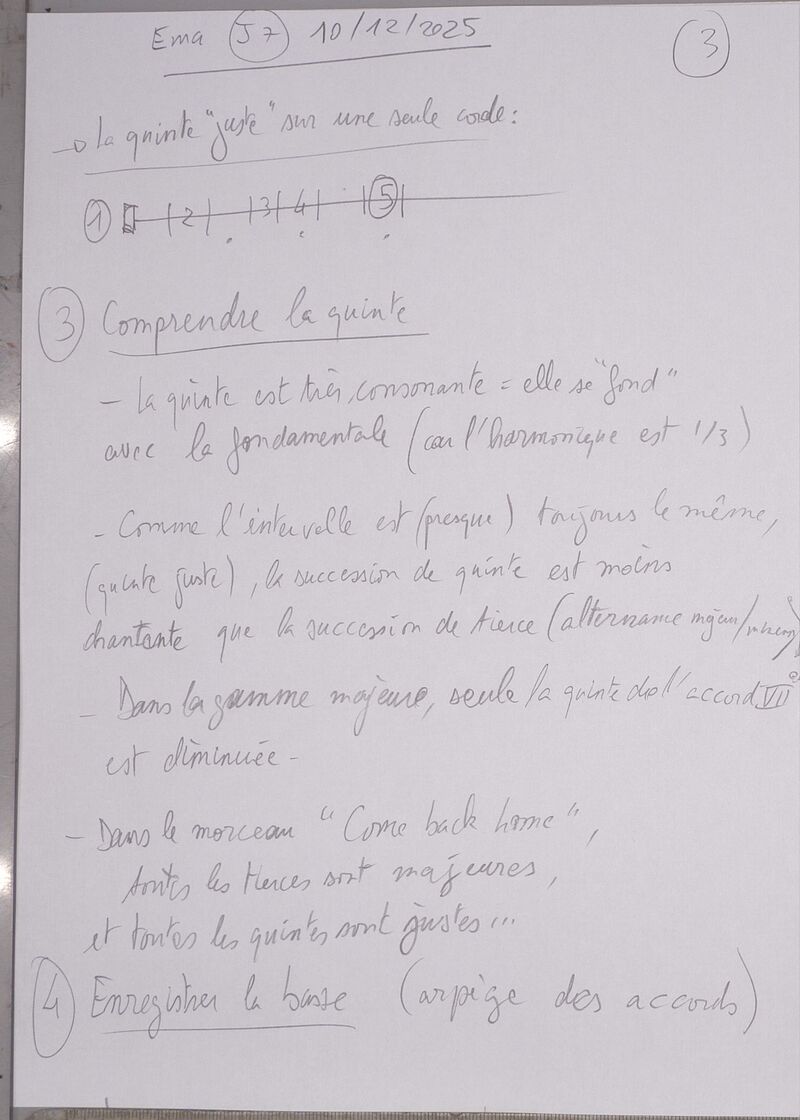 Ema J7 10/12/2025
3
→ La quinte "juste" sur une seule corde :
1 2 3 4 5
3 Comprendre la quinte
- La quinte est très consonante = elle se "fond"
avec la fondamentale (car l'harmonique est 1/3)
- Comme l'intervalle est (presque) toujours le même,
(quinte juste), la succession de quinte est moins
chantante que la succession de tierce (alternance majeur/mineur)
- Dans la gamme majeure, seule la quinte de l'accord VII°
est diminuée -
- Dans le morceau "Come back home",
toutes les tierces sont majeures,
et toutes les quintes sont justes...
4 Enregistrer la basse (arpège des accords)